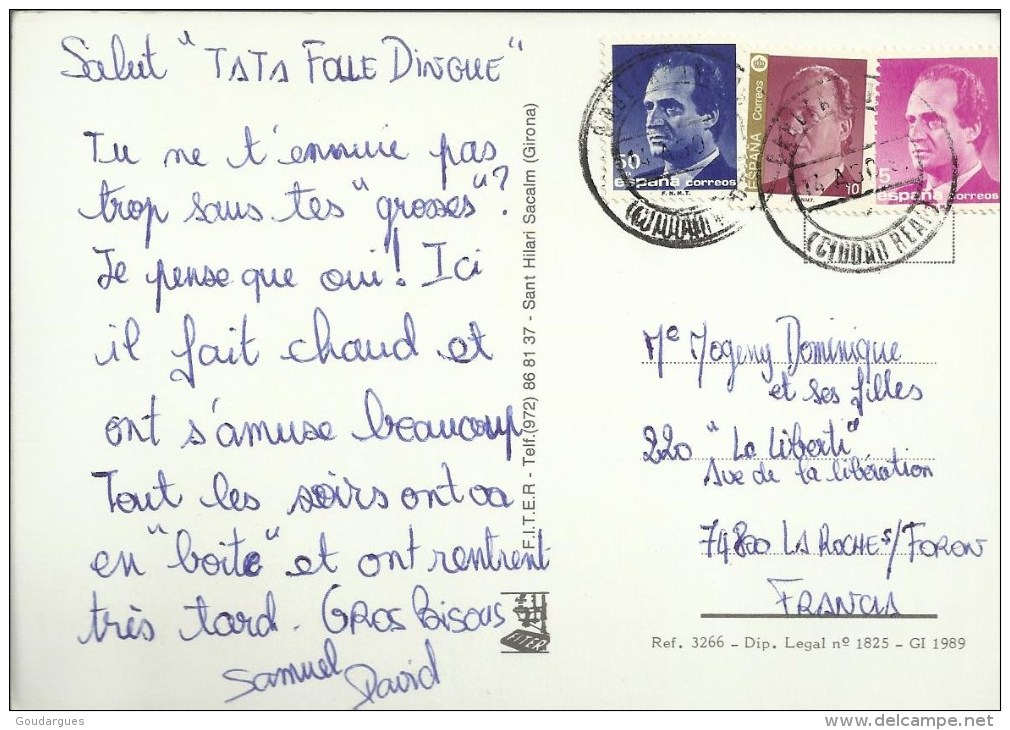 Salut "TATA FOLLE DINGUE"
Tu ne t'ennuie pas
trop sans tes "grosses"?
Je pense que oui! Ici
il fait chaud et
ont s'amuse beaucoup
Tout les soirs ont va
en "boite" et ont rentrent
très tard. GROS Bisous
Samuel David
F.I.T.E.R - Telf.(972) 86 81 37 - Sant Hilari Sacalm (Girona)
FITER
50
españa correos
F.N.M.T.
ESPAÑA Correos
10
5
españa correos
AGO
(CIUDAD REAL)
Me Mogeny Dominique
et ses filles
220 "La Liberti"
Ave de la libération
74800 LA ROCHE S/FORON
FRANCIA
Ref. 3266 – Dip. Legal nº 1825 – GI 1989
Goudargues
delcampe.net